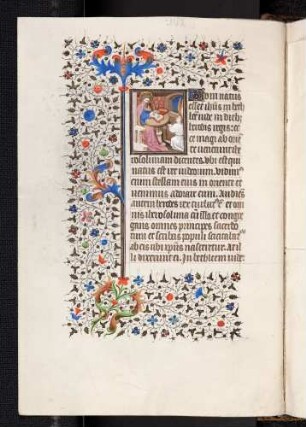 um natus
esset ihūs in beth
leē iude in dieb
herodis regis: ec
ce magi ab oriē
te venerunt ihe
rosolimam dicentes. Vbi est qui
natus est rex iudeorum. Vidim
enim stellam eius in oriente et
venimus adorare eum. Audiēs
autem herodes rex turbat̄ ē et om
nis iherosolima cū illo et congre
gans omnes principes sacerdo
tum et scribas populi
ab eis ubi xp̄us nasceretur. At il
li dixerunt ei. In bethleem iude.